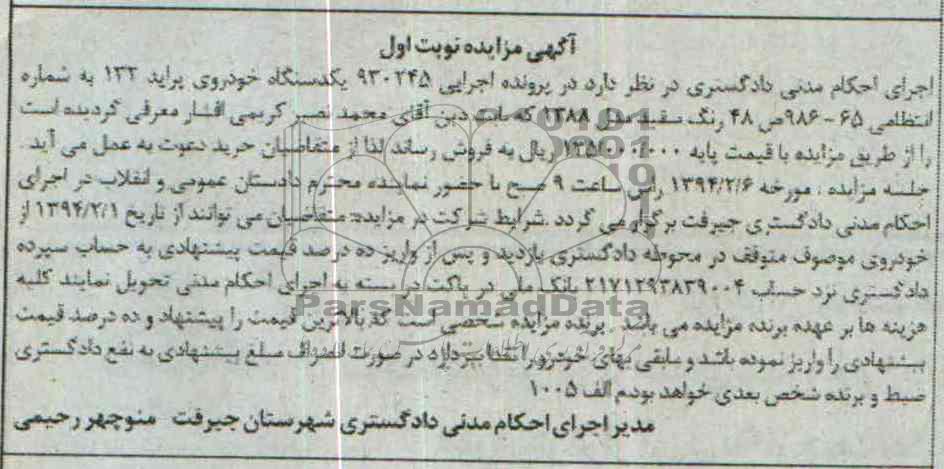 آگهی مزایده نوبت اول
اجرای احکام مدنی دادگستری در نظر دارد در پرونده اجرایی ۹۳۰۲۴۵ یکدستگاه خودروی پراید ۱۳۲ به شماره
انتظامی ۶۵ - ۹۸۶ص۴۸ رنگ سفید مدل ۱۳۸۸ که بابت دین آقای محمد نصیر کریمی افشار معرفی گردیده است
را از طریق مزایده با قیمت پایه ۱۳۵/۰۰۰/۰۰۰ ریال به فروش رساند لذا از متقاضیان خرید دعوت به عمل می آید.
جلسه مزایده ، مورخه ۱۳۹۴/۲/۶ راس ساعت ۹ صبح با حضور نماینده محترم دادستان عمومی و انقلاب در اجرای
احکام مدنی دادگستری جیرفت برگزار می گردد .شرایط شرکت در مزایده: متقاضیان می توانند از تاریخ ۱۳۹۴/۲/۱ از
خودروی موصوف متوقف در محوطه دادگستری بازدید و پس از واریز ده درصد قیمت پیشنهادی به حساب سپرده
دادگستری نزد حساب ۲۱۷۱۲۹۳۸۳۹۰۰۴ بانک ملی در پاکت در بسته به اجرای احکام مدنی تحویل نمایند کلیه
هزینه ها بر عهده برنده مزایده می باشد . برنده مزایده شخصی است که بالاترین قیمت را پیشنهاد و ده درصد قیمت
پیشنهادی را واریز نموده باشد و مابقی بهای خودرو را نقدا بپردازد در صورت انصراف مبلغ پیشنهادی به نفع دادگستری
ضبط و برنده شخص بعدی خواهد بود.م الف ۱۰۰۵
مدیر اجرای احکام مدنی دادگستری شهرستان جیرفت منوچهر رحیمی
ParsNamadData